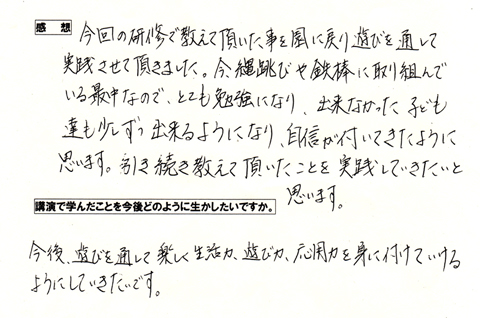 感想
今回の研修で教えて頂いた事を園に戻り遊びを通して
実践させて頂きました。今、縄跳びや鉄棒に取り組んで
いる最中なので、とても勉強になり、出来なかった子ども
達も少しずつ出来るようになり、自信が付いてきたように
思います。引き続き教えて頂いたことを実践していきたいと
思います。
講演で学んだことを今後どのように生かしたいですか。
今後、遊びを通して楽しく生活力、遊び力、応用力を身に付けていける
ようにしていきたいです。